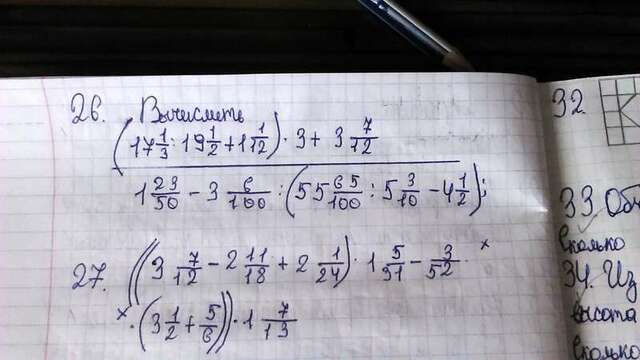 26. Вычислить
(17 1/3 : 19 1/2 + 1 1/12) · 3 + 3 7/12
1 23/50 - 3 6/100 : (55 65/100 : 5 3/10 - 4 1/2);
27. ((3 7/12 - 2 11/18 + 2 1/24) · 1 5/31 - 3/52 · x
x · (3 1/2 + 5/6)) · 1 7/13
32.
33. Объ
сколько
34. Из
высота
сколько